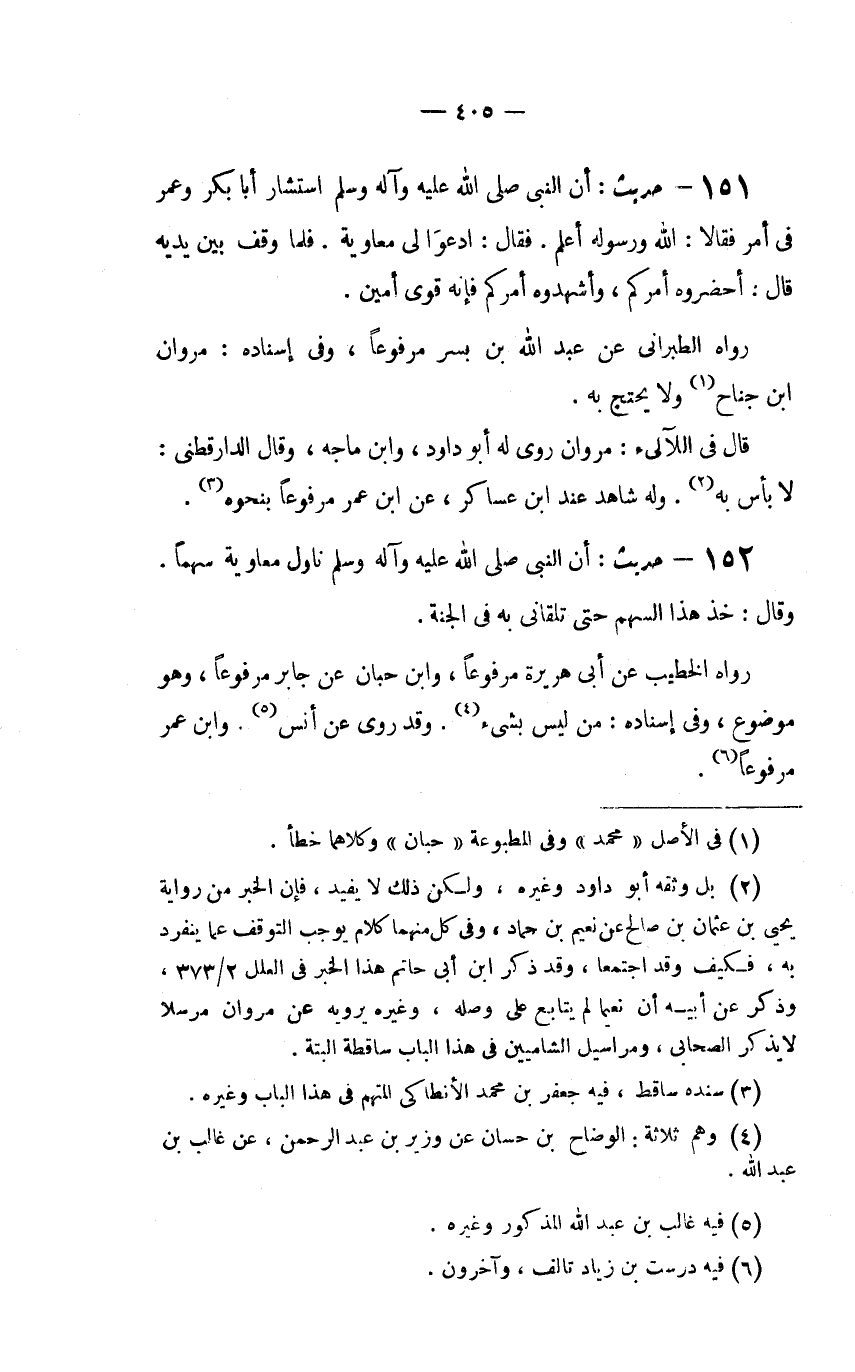 — ٤٠٥ —
١٥١ – حديث : أن النبى صلى الله عليه وآله وسلم استشار أبا بكر وعمر
فى أمر فقالا : الله ورسوله أعلم . فقال : ادعوَا لى معاوية . فلما وقف بين يديه
قال : أحضروه أمركم ، وأشهدوه أمركم فإنه قوى أمين .
رواه الطبرانى عن عبد الله بن بسر مرفوعاً ، وفى إسناده : مروان
ابن جناح(١) ولا يحتج به .
قال فى اللآلىء : مروان روى له أبو داود ، وابن ماجه ، وقال الدارقطنى :
لا بأس به(٢) . وله شاهد عند ابن عساكر ، عن ابن عمر مرفوعاً بنحوه(٣) .
١٥٢ – حديث : أن النبى صلى الله عليه وآله وسلم ناول معاوية سهماً .
وقال : خذ هذا السهم حتى تلقانى به فى الجنة .
رواه الخطيب عن أبى هريرة مرفوعاً ، وابن حبان عن جابر مرفوعاً ، وهو
موضوع ، وفى إسناده : من ليس بشىء(٤) . وقد روى عن أنس(٥) . وابن عمر
مرفوعاً(٦) .
(١) فى الأصل « محمد » وفى المطبوعة « حبان » وكلاهما خطأ .
(٢) بل وثقه أبو داود وغيره ، ولكن ذلك لا يفيد ، فإن الخبر من رواية
يحيى بن عثمان بن صالح عن نعيم بن حماد ، وفى كل منهما كلام يوجب التوقف عما ينفرد
به ، فكيف وقد اجتمعا ، وقد ذكر ابن أبى حاتم هذا الخبر فى العلل ٣٧٣/٢ ،
وذكر عن أبيه أن نعيما لم يتابع على وصله ، وغيره يرويه عن مروان مرسلا
لايذكر الصحابى ، ومراسيل الشاميين فى هذا الباب ساقطة البتة .
(٣) سنده ساقط ، فيه جعفر بن محمد الأنطاكى المتهم فى هذا الباب وغيره .
(٤) وهم ثلاثة : الوضاح بن حسان عن وزير بن عبد الرحمن ، عن غالب بن
عبد الله .
(٥) فيه غالب بن عبد الله المذكور وغيره .
(٦) فيه درست بن زياد تالف ، وآخرون .